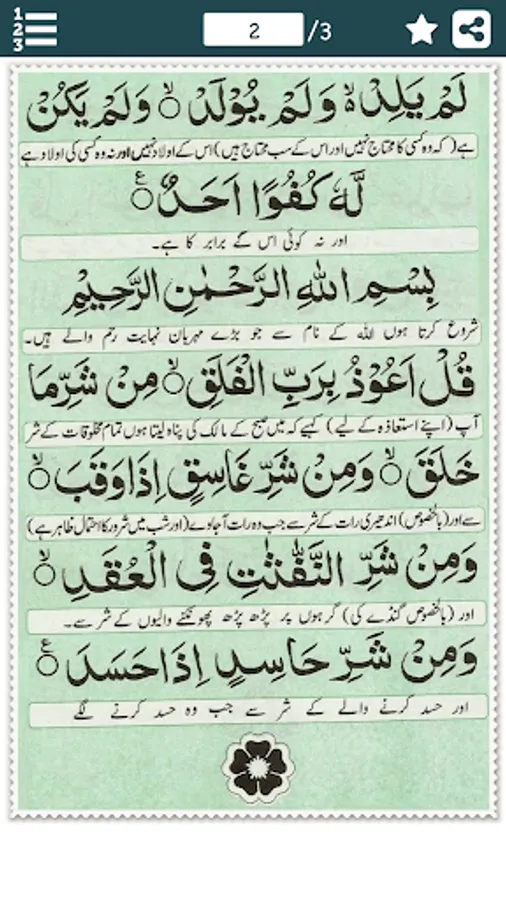 1
2
3
2 /3
لَمْ يَلِدْ ۙ وَلَمْ يُوْلَدْ ۙ وَلَمْ يَكُنْ
ہے (کہ وہ کسی کا محتاج نہیں اور اس کے سب محتاج ہیں) اس کے اولاد نہیں اور نہ وہ کسی کی اولاد ہے
لَّهٗ كُفُوًا اَحَدٌ ۠
اور نہ کوئی اس کے برابر کا ہے۔
بِسْمِ اللّٰهِ الرَّحْمٰنِ الرَّحِيْمِ
شروع کرتا ہوں اللہ کے نام سے جو بڑے مہربان نہایت رحم والے ہیں۔
قُلْ اَعُوْذُ بِرَبِّ الْفَلَقِ ۙ مِنْ شَرِّ مَا
آپ (اپنے استعاذہ کے لیے) کہیے کہ میں صبح کے مالک کی پناہ لیتا ہوں تمام مخلوقات کے شر
خَلَقَ ۙ وَمِنْ شَرِّ غَاسِقٍ اِذَا وَقَبَ ۙ
سے اور (بالخصوص) اندھیری رات کے شر سے جب وہ رات آجاوے (اور شب میں شرور کا احتمال ظاہر ہے)
وَمِنْ شَرِّ النَّفّٰثٰتِ فِى الْعُقَدِ ۙ
اور (بالخصوص گنڈے کی) گرہوں پر پڑھ پڑھ پھونکنے والیوں کے شر سے۔
وَمِنْ شَرِّ حَاسِدٍ اِذَا حَسَدَ ۠
اور حسد کرنے والے کے شر سے جب وہ حسد کرنے لگے